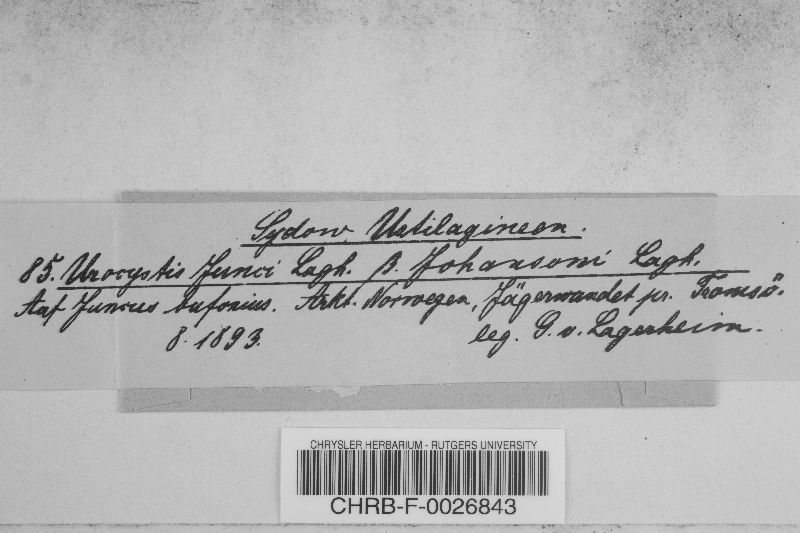 Sydow, Ustilagineen.
85. Urocystis Junci Lagh. β. Johansoni Lagh.
Auf Juncus bufonius. Arkt. Norwegen, Jägerwandet pr. Tromsö.
8. 1893. leg. G. v. Lagerheim.
CHRYSLER HERBARIUM - RUTGERS UNIVERSITY
CHRB-F-0026843